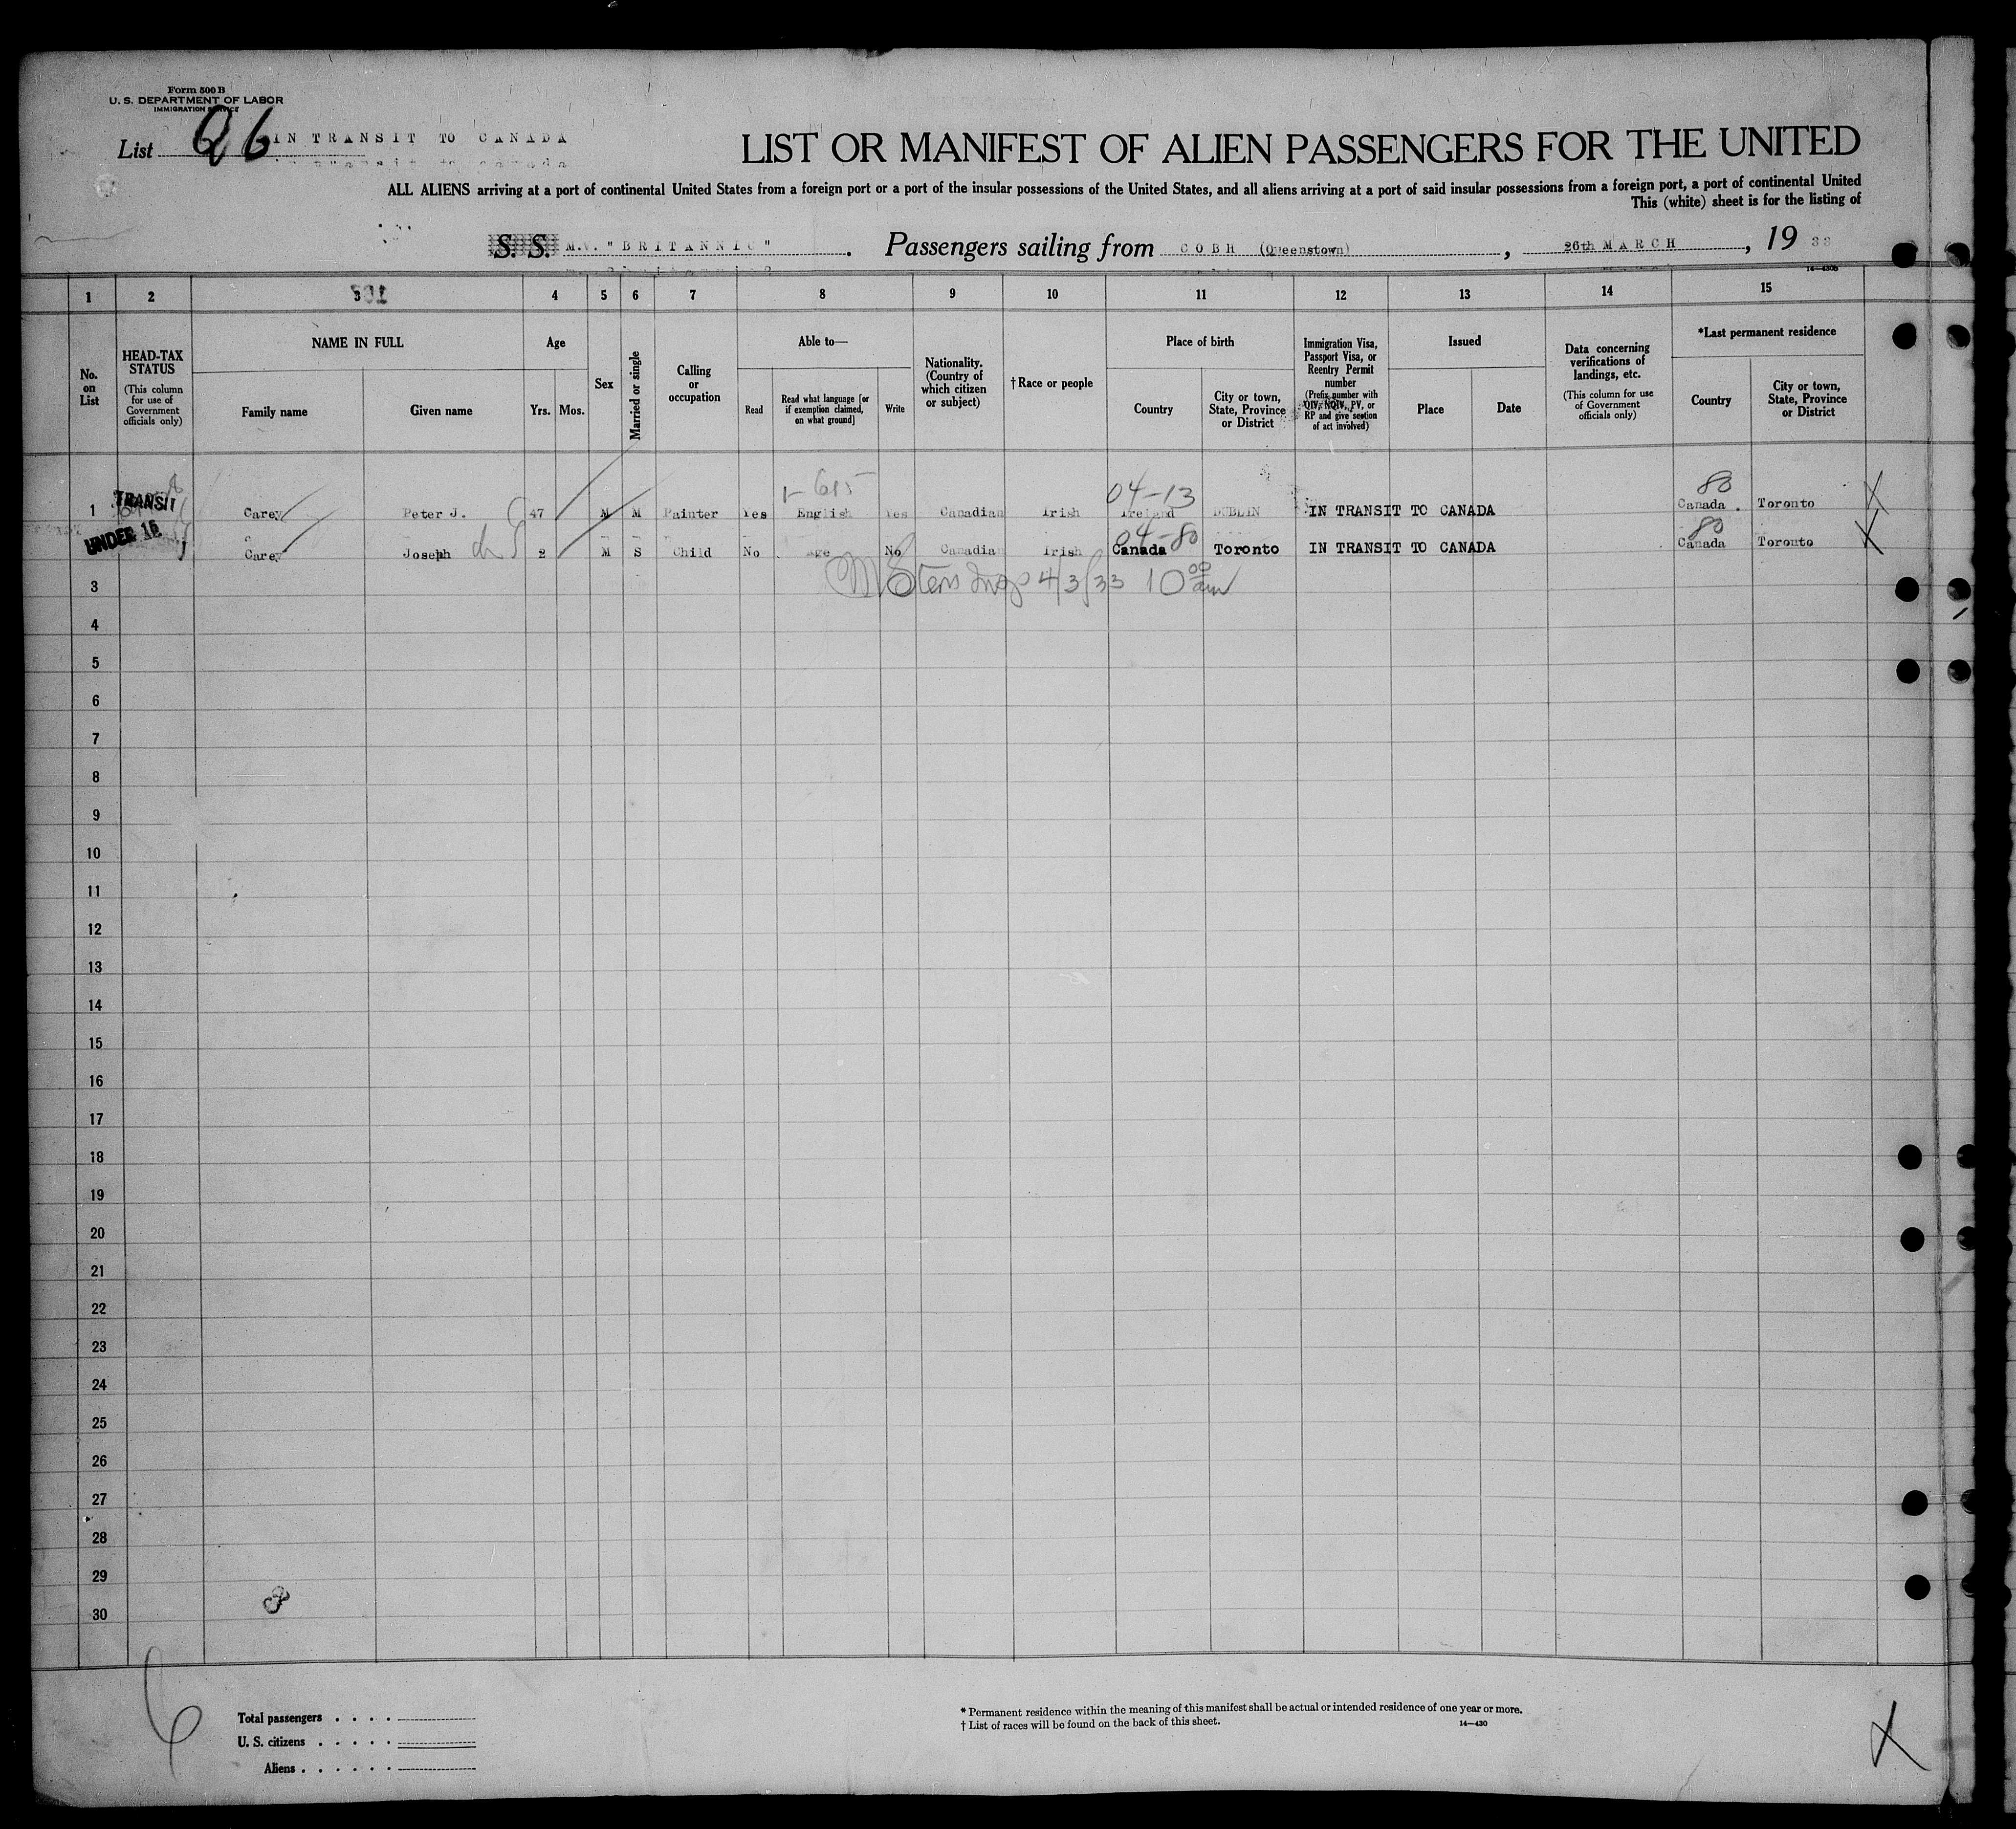 Form 500 B
U. S. DEPARTMENT OF LABOR
IMMIGRATION SERVICE
List 26 IN TRANSIT TO CANADA
LIST OR MANIFEST OF ALIEN PASSENGERS FOR THE UNITED
ALL ALIENS arriving at a port of continental United States from a foreign port or a port of the insular possessions of the United States, and all aliens arriving at a port of said insular possessions from a foreign port, a port of continental United
This (white) sheet is for the listing of
S. S. M.V. "BRITANNIC". Passengers sailing from COBH (Queenstown), 26th MARCH, 19 33
14-430B
1 2 3 4 5 6 7 8 9 10 11 12 13 14 15
No. on List
HEAD-TAX STATUS
(This column for use of Government officials only)
NAME IN FULL
Family name
Given name
Age
Yrs. Mos.
Sex
Married or single
Calling or occupation
Able to—
Read
Read what language [or if exemption claimed, on what ground]
Write
Nationality. (Country of which citizen or subject)
† Race or people
Place of birth
Country
City or town, State, Province or District
Immigration Visa, Passport Visa, or Reentry Permit number
(Prefix number with QIV, NQIV, PV, or RP and give section of act involved)
Issued
Place
Date
Data concerning verifications of landings, etc.
(This column for use of Government officials only)
*Last permanent residence
Country
City or town, State, Province or District
1-615 04-13 80
1 TRANSIT Carey Peter J. 47 M M Painter Yes English Yes Canadian Irish Ireland DUBLIN IN TRANSIT TO CANADA Canada . Toronto X
04-80 80
UNDER 16 Carey Joseph 2 M S Child No Age No Canadian Irish Canada Toronto IN TRANSIT TO CANADA Canada Toronto X
3 4/3/33 10 00 am
4
5
6
7
8
9
10
11
12
13
14
15
16
17
18
19
20
21
22
23
24
25
26
27
28
29
30
Total passengers . . . .
U. S. citizens . . . . .
Aliens . . . . . .
* Permanent residence within the meaning of this manifest shall be actual or intended residence of one year or more.
† List of races will be found on the back of this sheet.
14—430
X